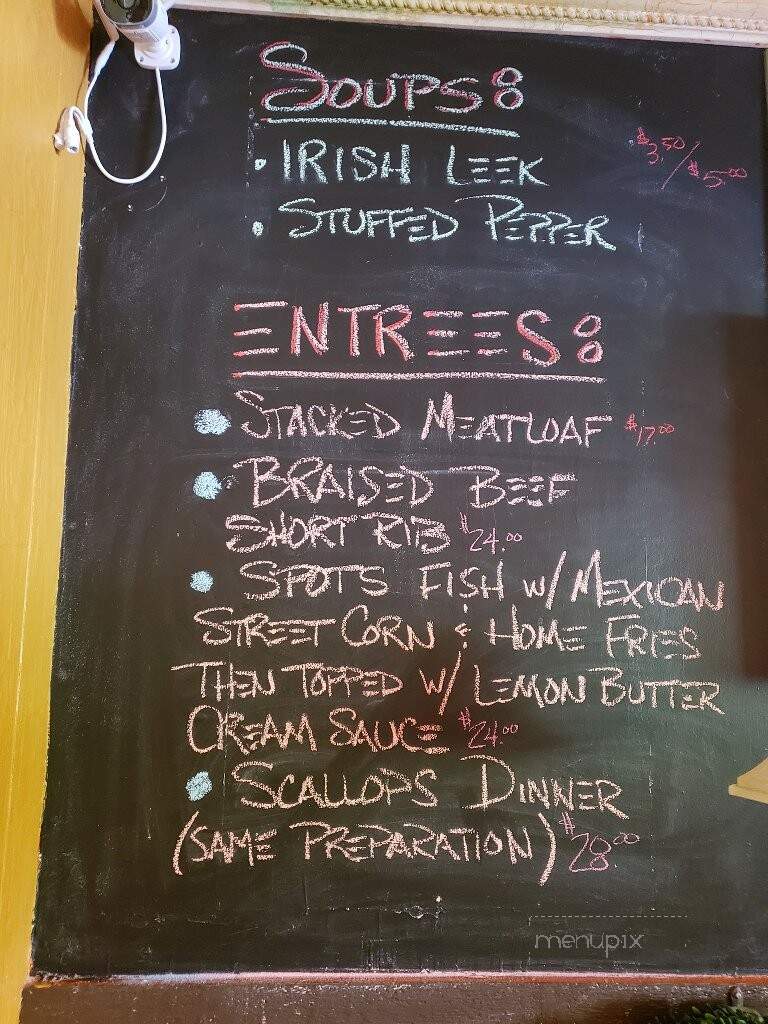 SOUPS:
• IRISH LEEK $3.50/$5.00
• STUFFED PEPPER
ENTREES:
• STACKED MEATLOAF $17.00
• BRAISED BEEF
SHORT RIB $24.00
• SPOTS FISH W/ MEXICAN
STREET CORN & HOME FRIES
THEN TOPPED W/ LEMON BUTTER
CREAM SAUCE $24.00
• SCALLOPS DINNER
(SAME PREPARATION) $28.00
menupix